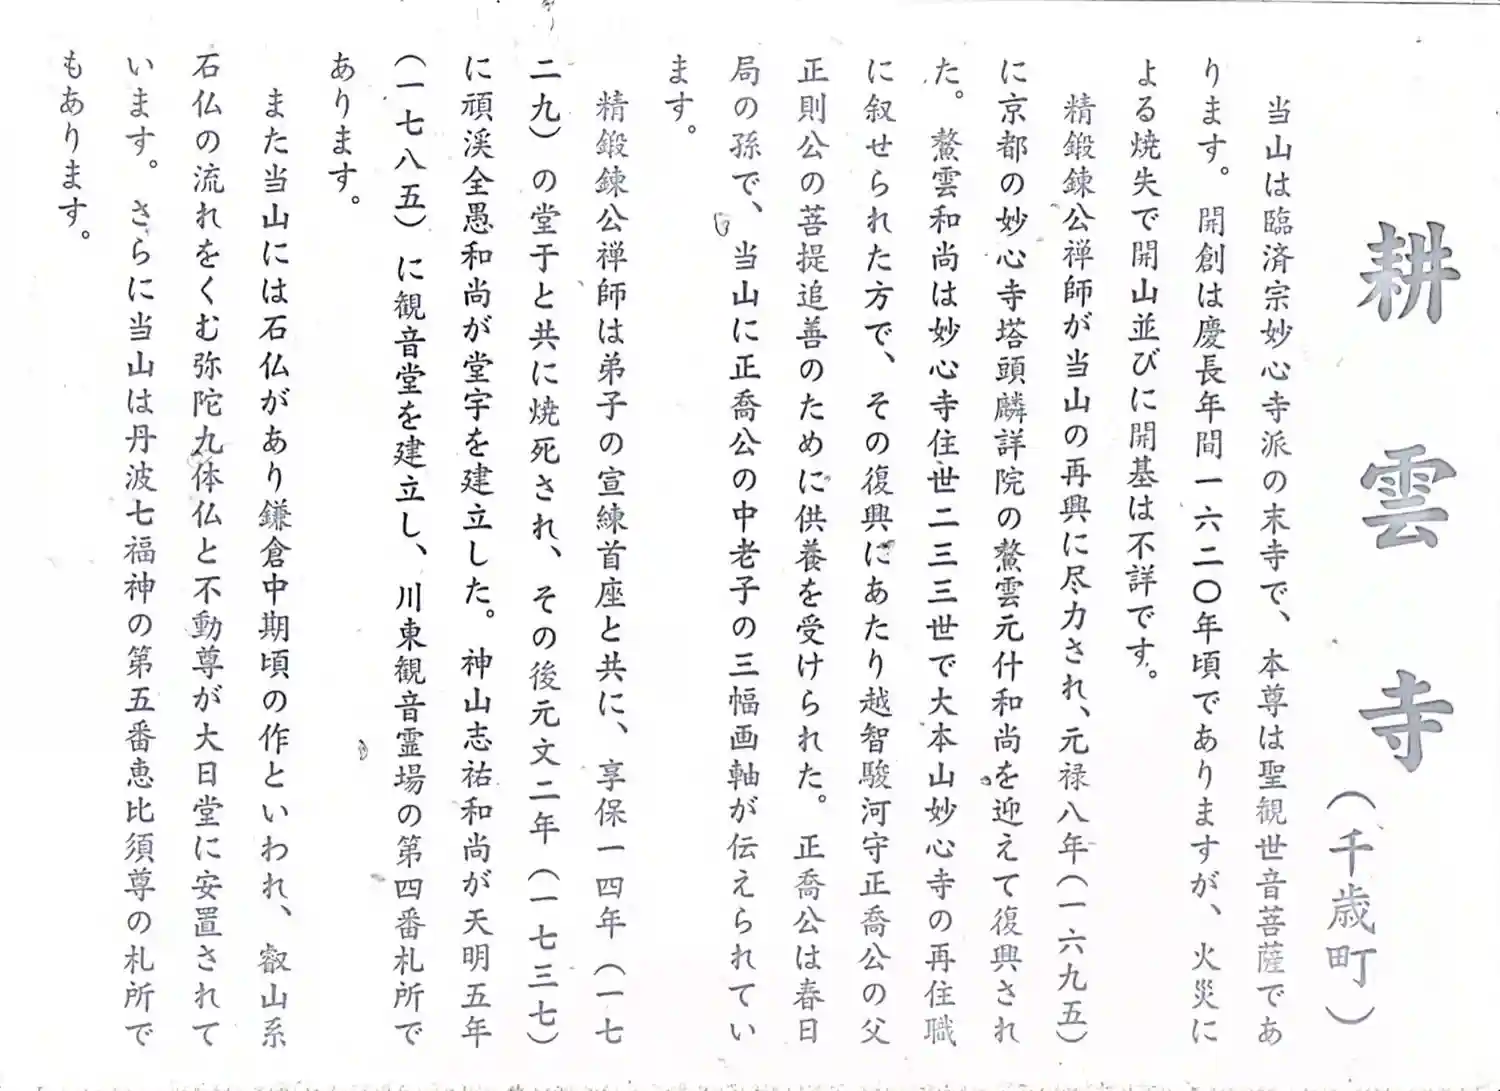 耕雲寺
（千歳町）
当山は臨済宗妙心寺派の末寺で、本尊は聖観世音菩薩であ
ります。開創は慶長年間一六二〇年頃でありますが、火災に
よる焼失で開山並びに開基は不詳です。
精鍛錬公禅師が当山の再興に尽力され、元禄八年（一六九五）
に京都の妙心寺塔頭麟詳院の鰲雲元什和尚を迎えて復興され
た。鰲雲和尚は妙心寺住世二三三世で大本山妙心寺の再住職
に叙せられた方で、その復興にあたり越智駿河守正喬公の父
正則公の菩提追善のために供養を受けられた。正喬公は春日
局の孫で、当山に正喬公の中老子の三幅画軸が伝えられてい
ます。
精鍛錬公禅師は弟子の宣練首座と共に、享保一四年（一七
二九）の堂于と共に焼死され、その後元文二年（一七三七）
に頑渓全愚和尚が堂宇を建立した。神山志祐和尚が天明五年
（一七八五）に観音堂を建立し、川東観音霊場の第四番札所で
あります。
また当山には石仏があり鎌倉中期頃の作といわれ、叡山系
石仏の流れをくむ弥陀九体仏と不動尊が大日堂に安置されて
います。さらに当山は丹波七福神の第五番恵比須尊の札所で
もあります。